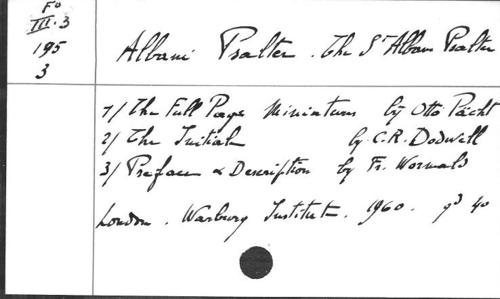 Fº
III.3
195
3
Albani Psalter. The St Albans Psalter
1/ The Full Page Miniatures by Otto Pächt
2/ The Initials by C.R. Dodwell
3/ Preface & Description by Fr. Wormald
London. Warburg Institute. 1960. gd 4º